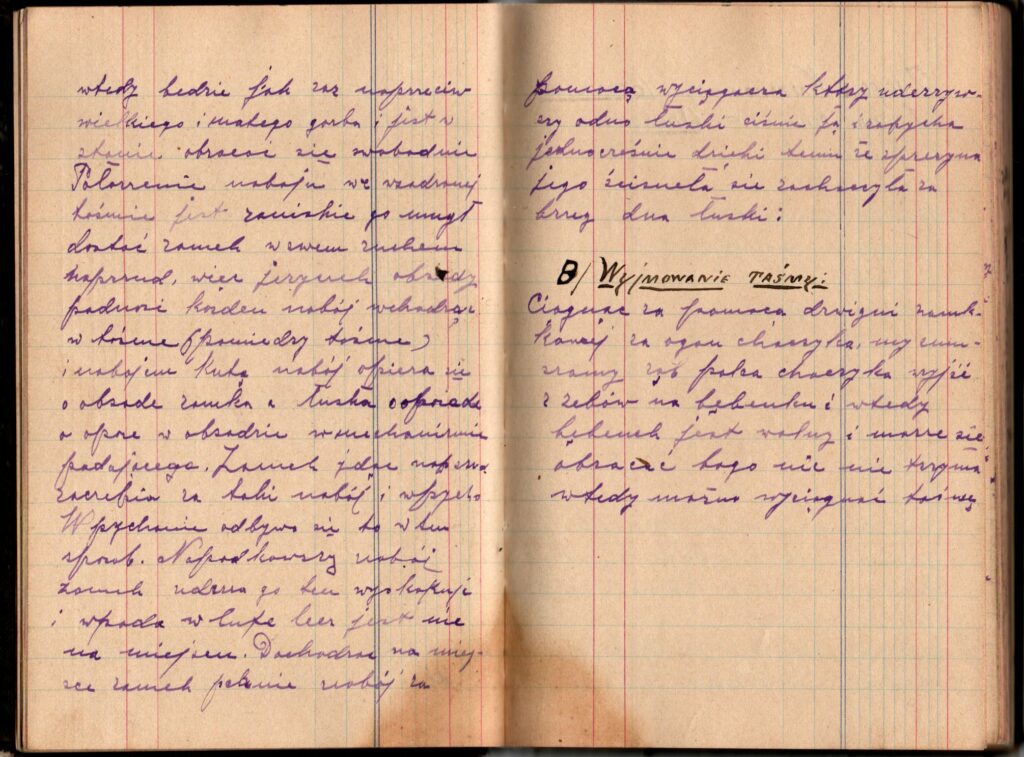 wtedy bedzie jak raz naprzeciw
wielkiego i małego garba i jest w
stanie obracać się swobodnie
Położenie naboju we wsadzonej
taśmie jest zaniskie go mógł
dostać zamek w swem ruchem
naprzud, więc języczek obsady
podnosi każden nabój wchodząc
w taśmę (pomiedzy taśmę)
i nabojem kula nabój opiera się
o obsade zamka a łuska o
o opore w obsadzie w mechanizmie
podającego. Zamek jdąc naprzud
zaczepia za taki nabój i wpycha
Wpychanie odbywa się to w ten
sposób. Napodkawszy nabój
zamek udeża go ten wyskakuje
i wpada w lufę lecz jest nie
na miejscu. Dochodząc na miej-
sce zamek pchnie nabój za
pomocą wyciągacza który uderzyw-
szy odno łuski ciśnie ją i zapycha
jednocześnie dzieki temu że sprezyna
jego ścisneła sie zachaczyła za
brzeg dna łuski:
B/ Wyjmowanie taśmy:
Ciagnąc za pomoca drzwigni zamk-
kowej za ogon chaczyka, my zmu-
szamy ząb paka chaczyka wyjść
z zebów na bębenku i wtedy
bębenek jest wolny i morze się
obracać bogo nic nie trzyma
wtedy możno wyciągnąć taśmę